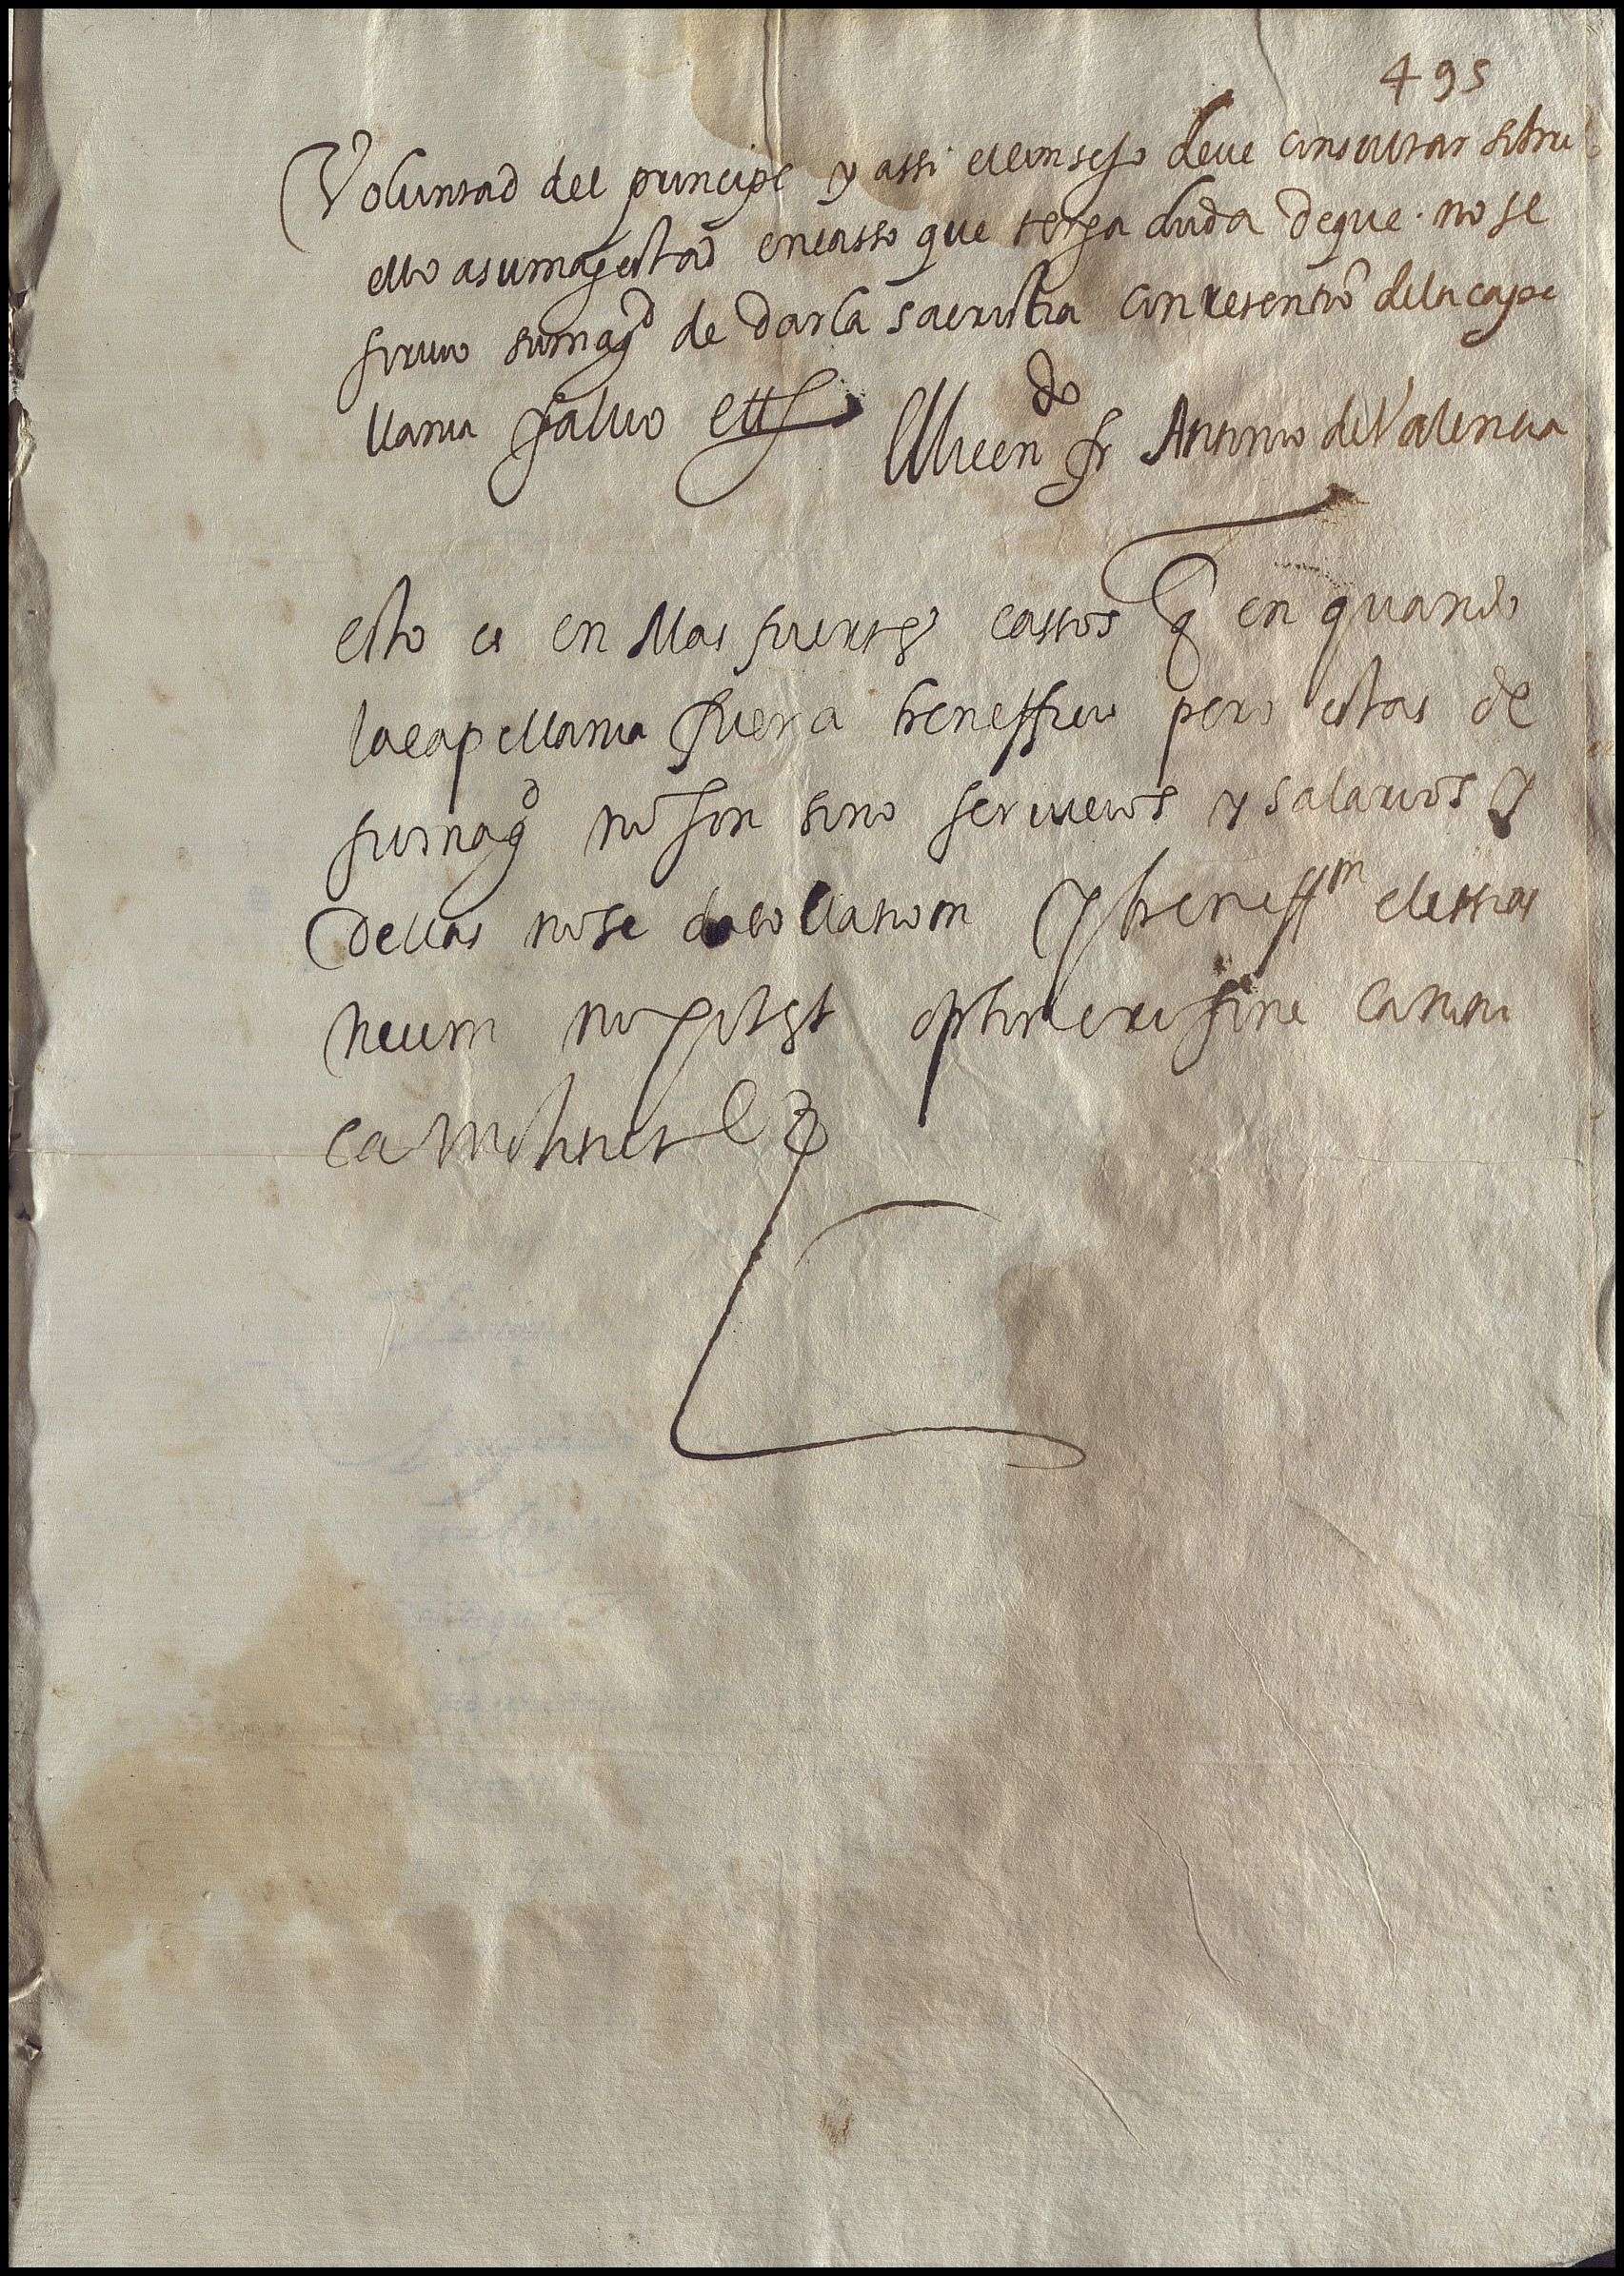 495
Voluntad del principe y assi el consejo deve consultar sobre
ello a su magestad en casso que tenga duda de que no se
siruio su magd de dar la sacristia con retention de la cape
llania salvo etc Licendo fr Antonio de Valencia
esto es en Mas fuertes cassos q en quando
la capellania fuera beneffiçio pero estas de
su magd no son sino servicios y salarios y
dellas no se da collationm y beneffm eclesias
ticum no potest optineri sine canoni
ca institut